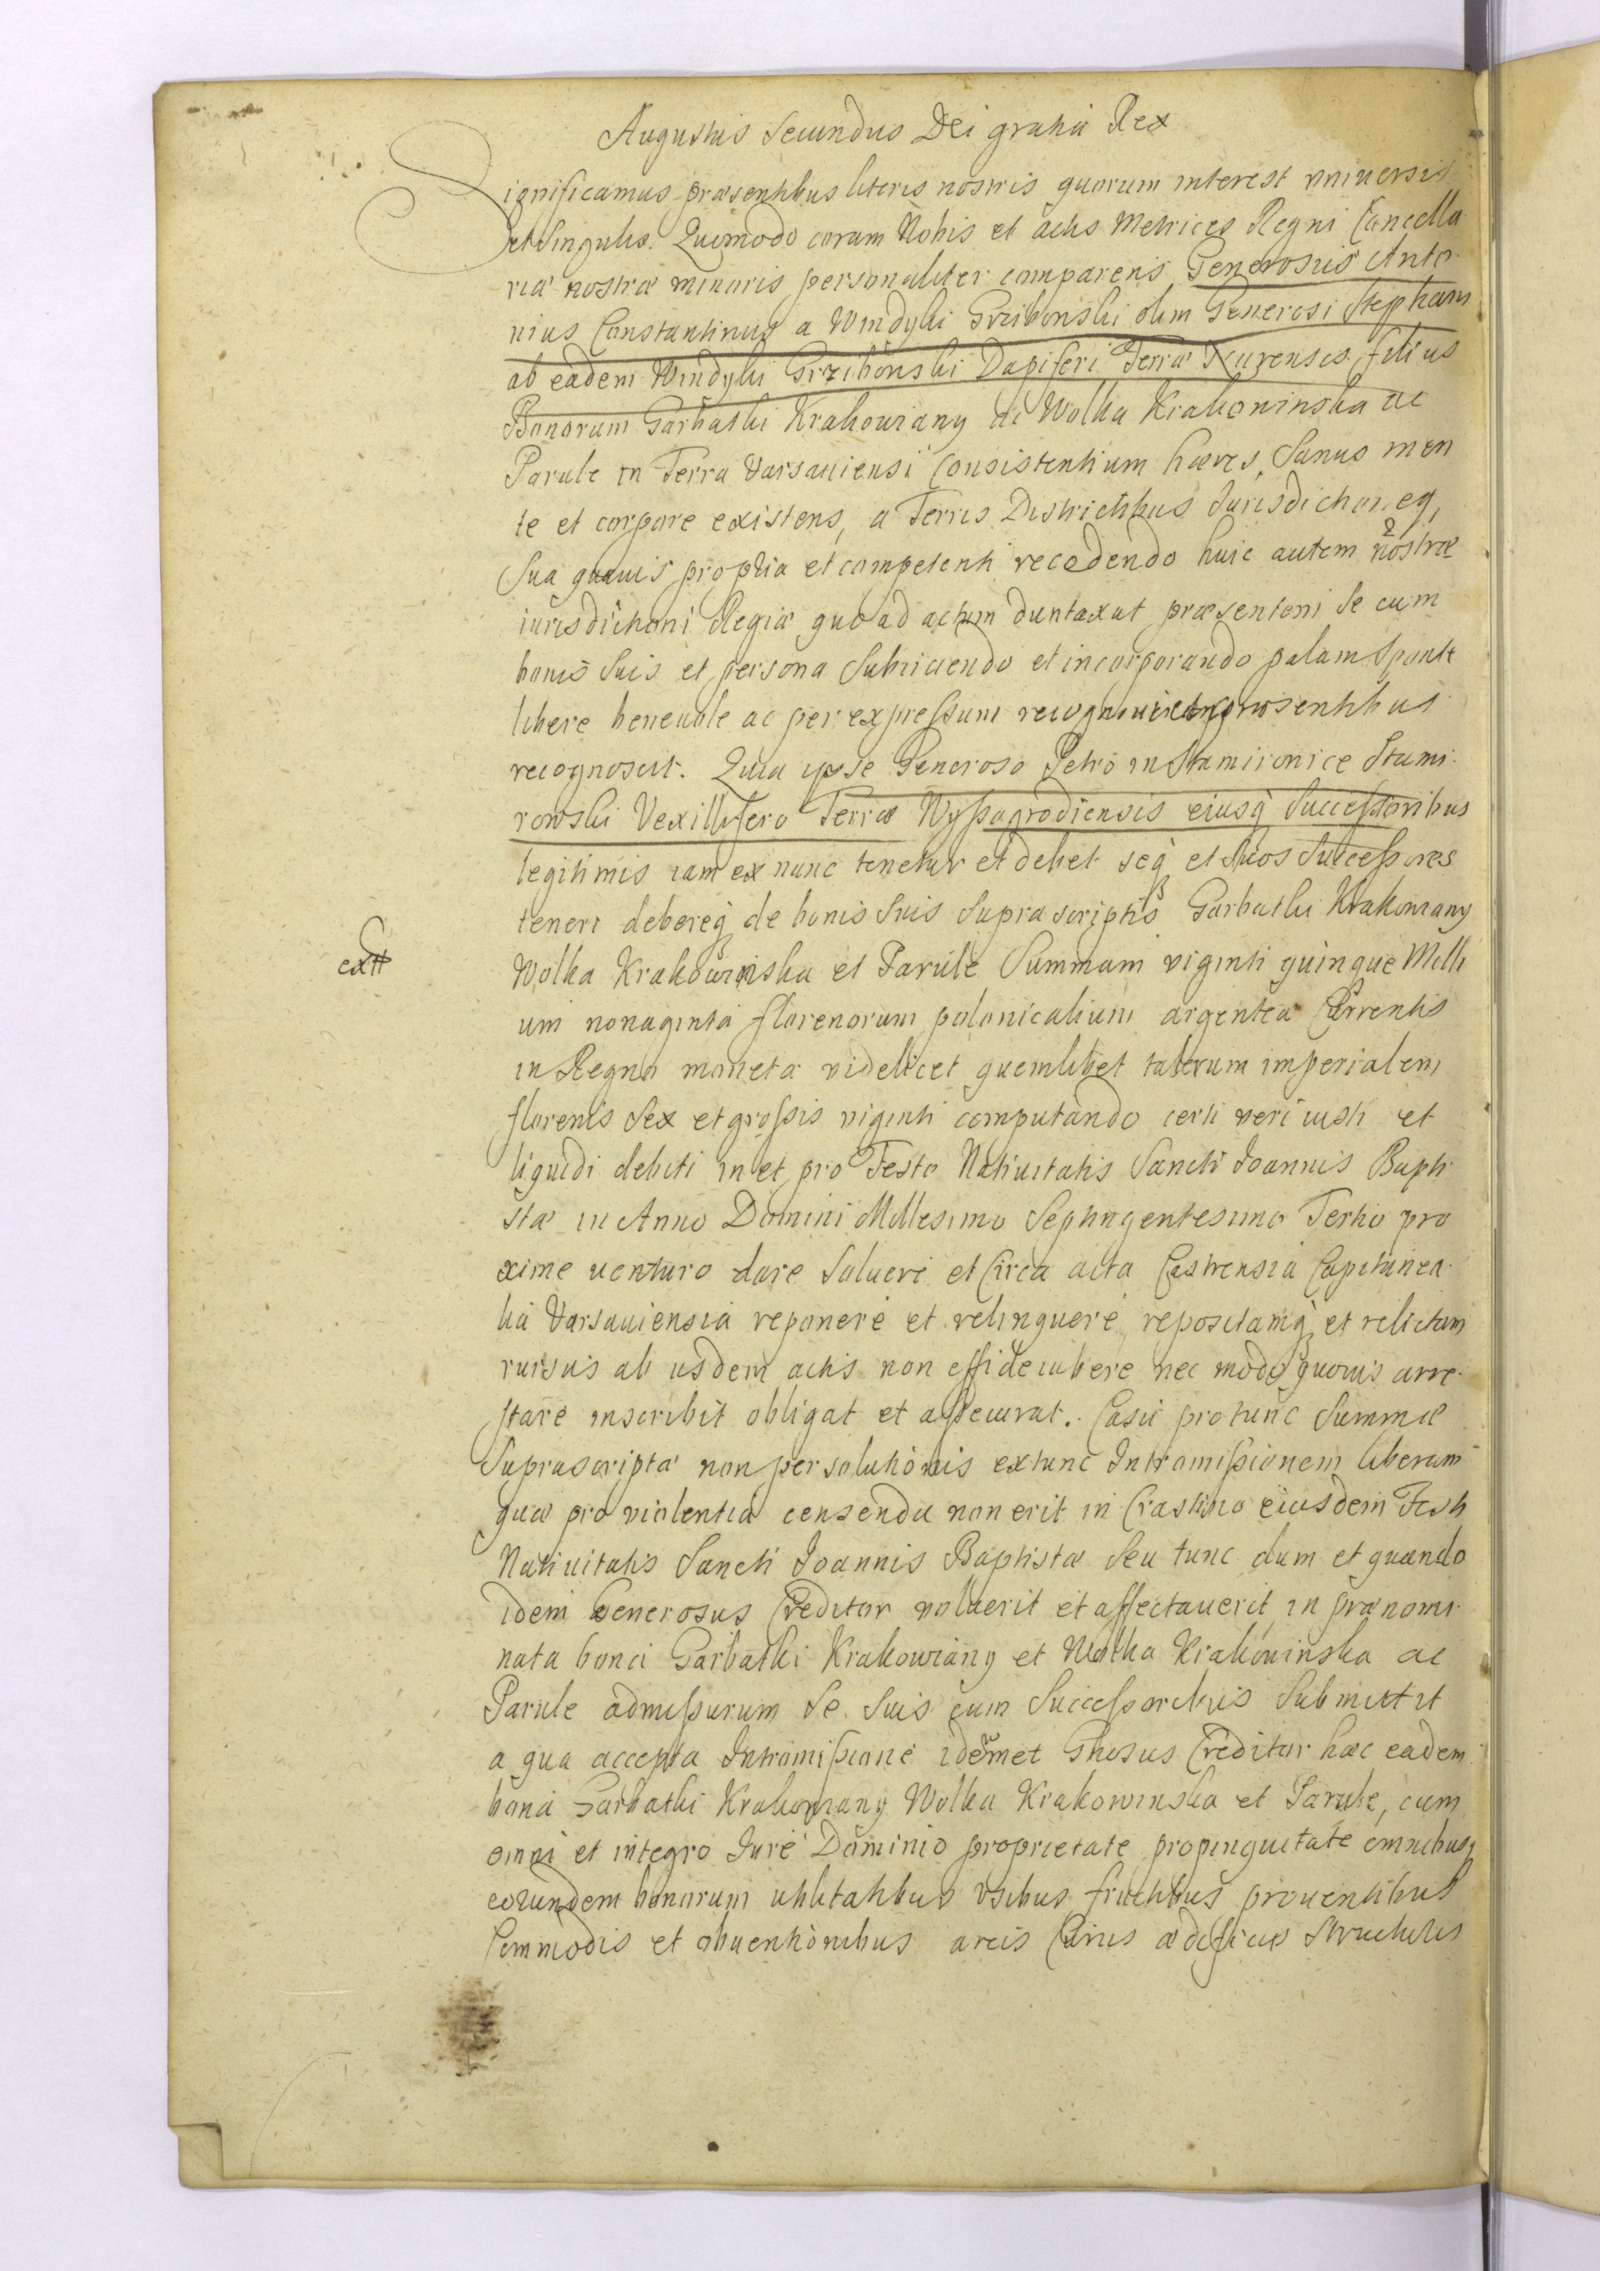 Augustus Secundus Dei gratia Rex
Significamus præsentibus literis nostris quorum interest vniversis
et Singulis. Quomodo coram Nobis et actis Metrices Regni Cancella
riæ nostræ minoris personaliter comparens Generosus Anto
nius Constantinus a Windyki Grzibowski olim Generosi Stephani
ab eadem Windyki Grzibowski Dapiferi Terræ Nurensis filius
Bonorum Garbatki Krakowiany ac Wolka Krakowinska ac
Parule in Terra Varsauiensi Consistentium hæres, Sanus men
te et corpore existens, a Terris Districtibus Jurisdictioneq,
Sua quauis propria et competenti recedendo huic autem nostræ
iurisdictioni Regiæ quo ad actum duntaxat præsentem Se cum
bonis Suis et persona Subiiciendo et incorporando palam Sponte
libere beneuole ac per expressum recognouit præsentibus
recognoscit. Quia ipse Generoso Petro in Stamirowice Stami
rowski Vexillifero Terræ Wyssogrodiensis eiusq Successoribus
legitimis iam ex nunc tenetur et debet seq et Suos Successores
teneri debereq de bonis Suis Suprascriptis Garbatki Krakowiany
extt
Wolka Krakowinska et Parule Summam viginti quinque Milli
um nonaginta florenorum polonicalium argentea Currentis
in Regno moneta videlicet quemlibet talerum imperialem
florenis Sex et grossis viginti computando certi veri iusti et
liquidi debiti in et pro Festo Natiuitatis Sancti Joannis Bapti
stæ in Anno Domini Millesimo Septingentesimo Tertio pro
xime venturo dare Soluere et Circa acta Castrensia Capitanea
lia Varsauiensia reponere et relinquere, repositamq et relictam
rursus ab iisdem actis non leuare nec modo quouis arre
stare inscribit obligat et assecurat. Casu pro tunc Summæ
Suprascriptæ non persolutionis extunc Intromissionem liberam
quæ pro violentia censenda non erit in Crastino eiusdem Festi
Natiuitatis Sancti Joannis Baptistæ Seu tunc dum et quando
idem Generosus Creditor voluerit et affectauerit in prænomi
nata bona Garbatki Krakowiany et Wolka Krakowinska ac
Parule admissurum Se Suis cum Successoribus Submittit
a qua accepta Intromissione idemmet Gnosus Creditor hæc eadem
bona Garbatki Krakowiany Wolka Krakowinska et Parule, cum
omni et integro Jure Dominio proprietate propinquitate omnibusq
eorundem bonorum vtilitatibus vsibus fructibus prouentibus
Commodis et obuentionibus areis Curiis ædificiis Structuris